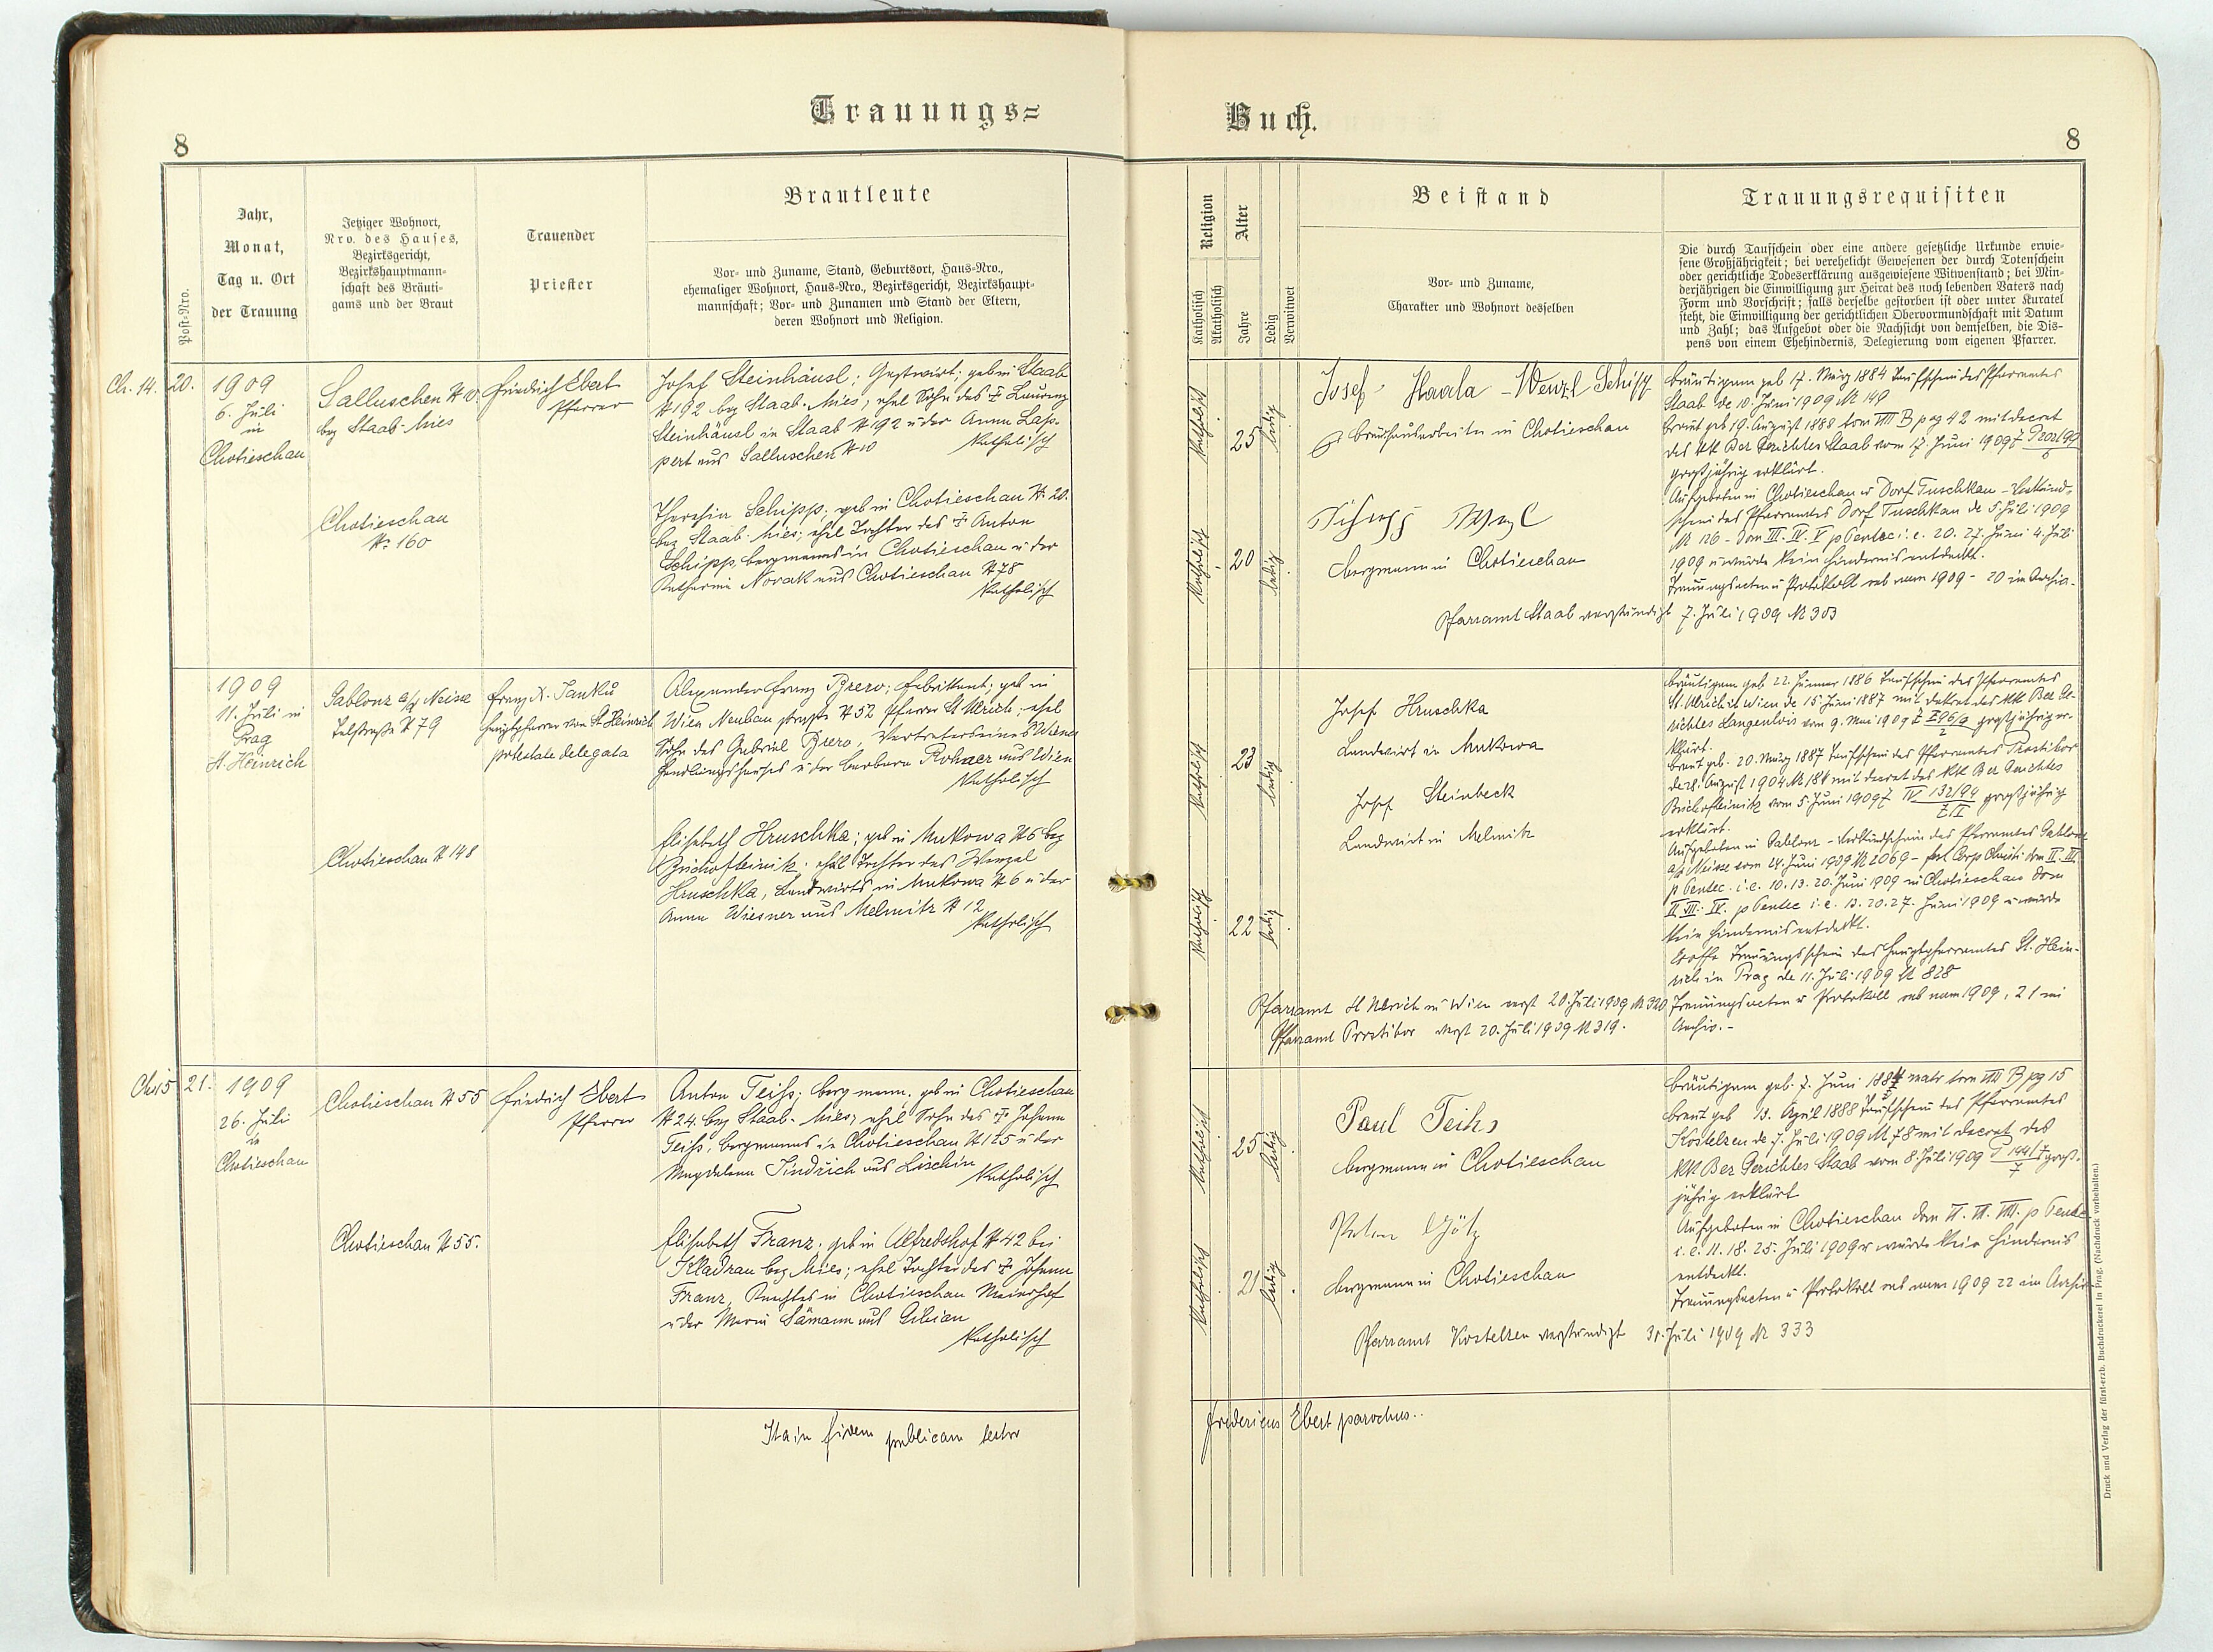 Trauungs=
Buch.
8
8
Post=Nro.
Jahr,
Monat,
Tag u. Ort
der Trauung
Jetziger Wohnort,
Nro. des Hauses,
Bezirksgericht,
Bezirkshauptmann=
schaft des Bräuti=
gams und der Braut
Trauender
Priester
Brautleute
Vor= und Zuname, Stand, Geburtsort, Haus=Nro.,
ehemaliger Wohnort, Haus=Nro., Bezirksgericht, Bezirkshaupt=
mannschaft; Vor= und Zunamen und Stand der Eltern,
deren Wohnort und Religion.
Religion
Katholisch
Akatholisch
Alter
Jahre
Ledig
Verwitwet
Beistand
Vor= und Zuname,
Charakter und Wohnort desselben
Trauungsrequisiten
Die durch Taufschein oder eine andere gesetzliche Urkunde erwie=
sene Großjährigkeit; bei verehelicht Gewesenen der durch Totenschein
oder gerichtliche Todeserklärung ausgewiesene Witwenstand; bei Min=
derjährigen die Einwilligung zur Heirat des noch lebenden Vaters nach
Form und Vorschrift; falls derselbe gestorben ist oder unter Kuratel
steht, die Einwilligung der gerichtlichen Obervormundschaft mit Datum
und Zahl; das Aufgebot oder die Nachsicht von demselben, die Dis=
pens von einem Ehehindernis, Delegierung vom eigenen Pfarrer.
Ch. 14. 20.
1909
6. Juli
in
Chotieschau
Salluschen N 10
bez Staab-Mies
Friedrich Ebert
Pfarrer
Josef Steinhäusl; Gastwirt; geb in Staab
N 192 bez Staab-Mies, ehel Sohn des + Lorenz
Steinhäusl in Staab N 192 u der Anna Lap-
pert aus Salluschen N 10 Katholisch
Chotieschau
N. 160
Theresia Schipp; geb in Chotieschau N. 20.
bez Staab-Mies; ehel Tochter des + Anton
Schipp, Bergmanns in Chotieschau u der
Katharina Novak aus Chotieschau N 78
Katholisch
Katholisch
25
ledig
Katholisch
20
ledig
Josef Havla - Wenzl Schipp
Brauhausarbeiter in Chotieschau
Bergmann in Chotieschau
Pfarramt Staab verständigt 7. Juli 1909 N 303
Bräutigam geb 17. März 1884 Taufschein des Pfarramtes
Staab de 10. Juni 1909 N 149
Braut geb 19. August 1888 tom VIII B pag 42 mit decret
des kk Bez Gerichtes Staab vom 17. Juni 1909
großjährig erklärt.
Aufgeboten in Chotieschau u Dorf Tuschkau - Verkünd-
schein des Pfarramtes Dorf Tuschkau de 5. Juli 1909
N 126 - dom III. IV. V p Pentec i. e. 20. 27. Juni 4. Juli
1909 u wurde kein Hindernis entdeckt.
Trauungsacten u Protokoll sub num 1909 - 20 im Archiv.
1909
11. Juli in
Prag
St. Heinrich
Gablonz a/d Neisse
Talstraße N 79
Franz X. Janků
Hauptpfarrer von St Heinrich
potestate delegata
Alexander Franz Brero; Fabrikant; geb in
Wien Neubau N 52 Pfarre St Ulrich; ehel
Sohn des Gabriel Brero, Vertreters eines Wiener
Handlungshauses u der Barbara Rohner aus Wien
Katholisch
Chotieschau N 148
Elisabeth Hruschka; geb in Mukowa N 6 bez
Bischofteinitz. ehel Tochter des Wenzel
Hruschka, Landwirts in Mukowa N 6 u der
Anna Wiesner aus Melmitz N 12
Katholisch
Katholisch
23
ledig
Katholisch
22
ledig
Josef Hruschka
Landwirt in Mukowa
Josef Steinbeck
Landwirt in Melmitz
Pfarramt St Ulrich in Wien verst 20. Juli 1909 N 320
Pfarramt Prostibor verst 20. Juli 1909 N 319.
Bräutigam geb. 22. Jänner 1886 Taufschein des Pfarramtes
St. Ulrich in Wien de 15. Juni 1887 mit dekret des kk Bez Ge-
richtes Langenlois vom 9. Mai 1909 großjährig er-
klärt.
Braut geb. 20. März 1887 Taufschein des Pfarramtes Prostibor
de 28. August 1904 N 184 mit decret des kk Bez Gerichtes
Bischofteinitz vom 5. Juni 1909 großjährig
erklärt.
Aufgeboten in Gablonz - Verkündschein des Pfarramtes Gablonz
a/d Neisse vom 24. Juni 1909 N 2069 - fest Corp Christi dom II. III.
p Pentec. i. e. 10. 13. 20. Juni 1909 in Chotieschau dom
II. III. IV. p Pentec i. e. 13. 20. 27. Juni 1909 u wurde
kein Hindernis entdeckt.
Trauungsschein des Hauptpfarramtes St. Hein-
rich in Prag de 11. Juli 1909 N 828
Trauungsacten u Protokoll sub num 1909, 21 im
Archiv. -
Ch. 15 21.
1909
26. Juli
in
Chotieschau
Chotieschau N 55
Friedrich Ebert
Pfarrer
Anton Teihs; Bergmann, geb in Chotieschau
N 24. bez Staab-Mies, ehel Sohn des + Johann
Teihs, Bergmanns in Chotieschau N 125 u der
Magdalena Jindrich aus Lischin
Katholisch
Chotieschau N 55.
Elisabeth Franz. geb in Alfredshof N 42 bei
Kladrau bez Mies; ehel Tochter des + Johann
Franz, Knechtes in Chotieschau Meierhof
u der Maria Sämann aus Gibian
Katholisch
Katholisch
25
ledig
Katholisch
21
ledig
Paul Teihs
Bergmann in Chotieschau
Anton Götz
Bergmann in Chotieschau
Pfarramt Kostelzen verständigt 31. Juli 1909 N 333
Bräutigam geb. 7. Juni 1884 matr tom VIII B pg 15
Braut geb 13. April 1888 Taufschein des Pfarramtes
Kostelzen de 7. Juli 1909 N 78 mit decret des
kk Bez Gerichtes Staab vom 8. Juli 1909 P 144/7 7 groß-
jährig erklärt
Aufgeboten in Chotieschau dom VI. VII. VIII. p Pentec
i. e. 11. 18. 25. Juli 1909 u wurde kein Hindernis
entdeckt.
Trauungsacten u Protokoll sub num 1909 22 im Archiv
Ita in fidem publicam testor
Fridericus Ebert parochus..
Druck und Verlag der fürst-erzb. Buchdruckerei in Prag. (Nachdruck vorbehalten.)